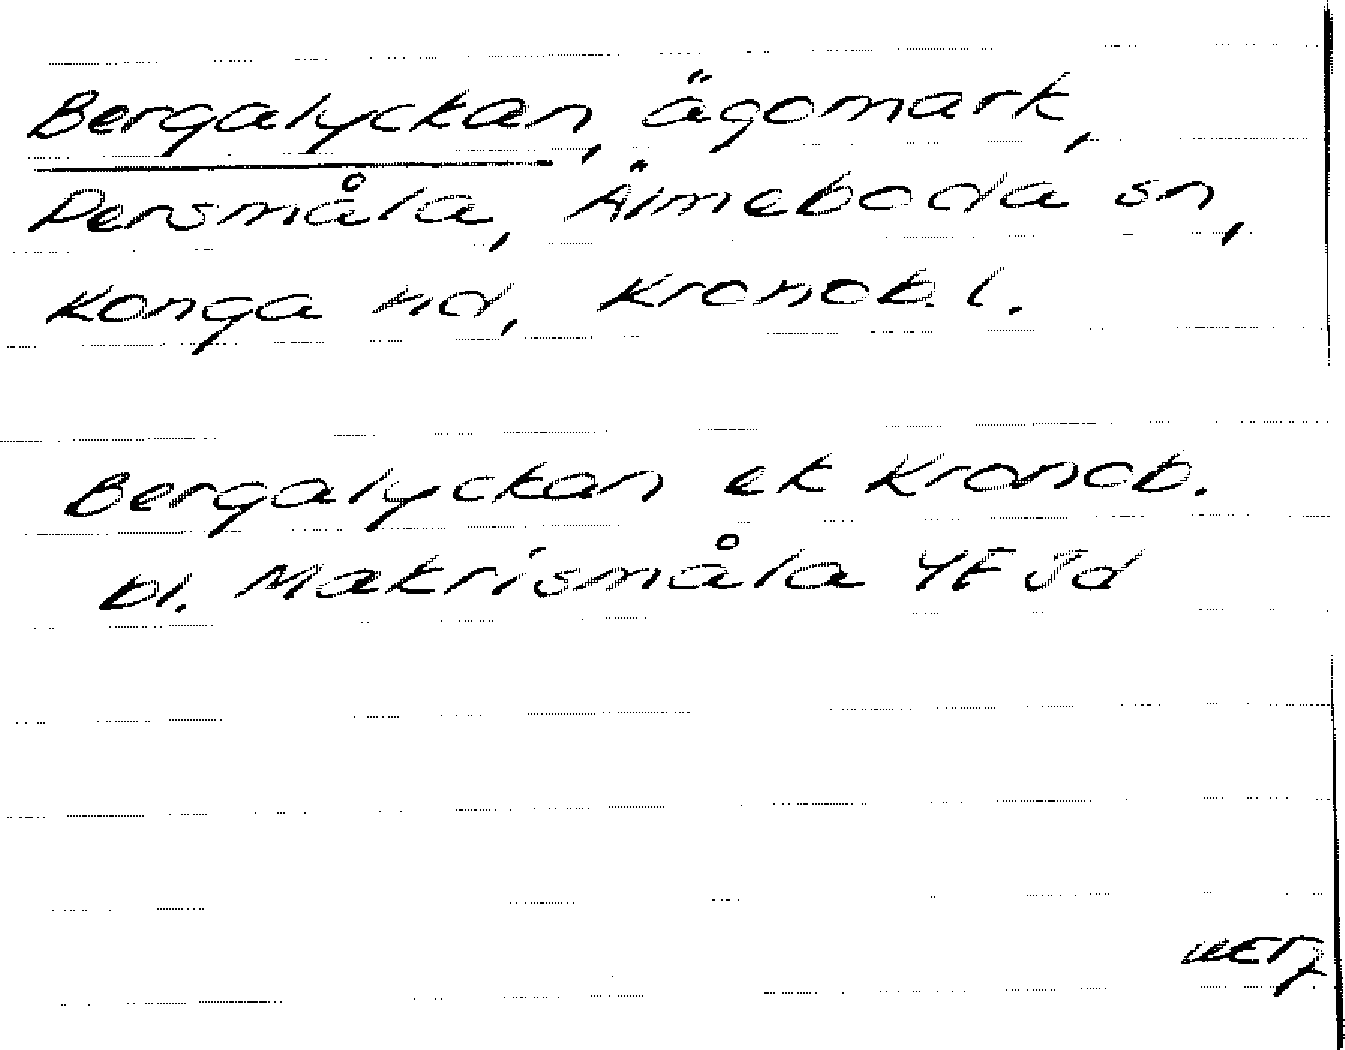 Bergalyckan, ägomark,
Persmåla, Älmeboda sn,
Konga hd, Kronob. l.
Bergalyckan ek Kronob.
bl. Makrismåla 4E Jd